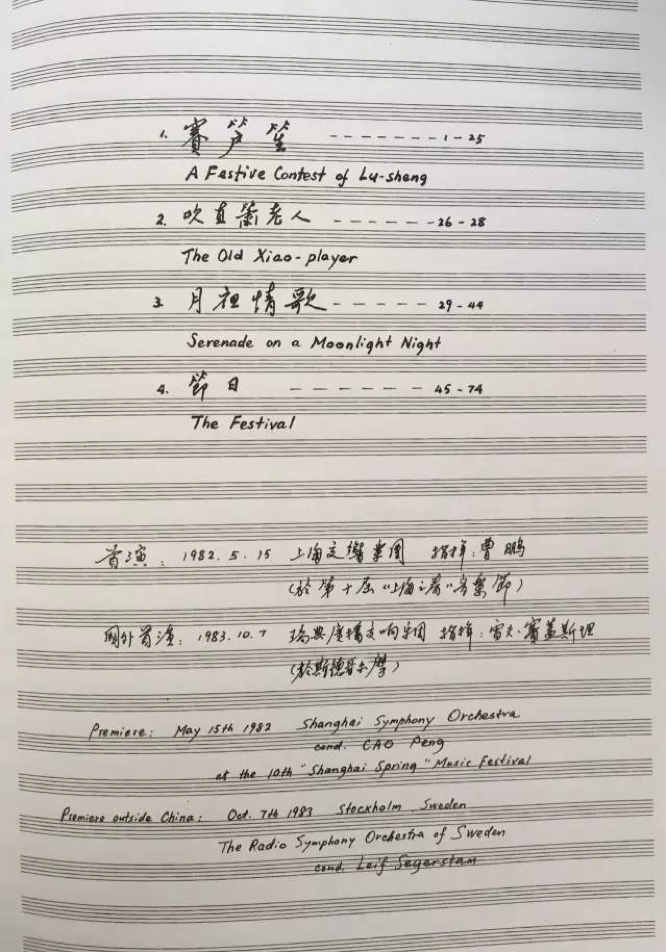 1. 賽芦笙 ------- 1-25
A Festive Contest of Lu-sheng
2. 吹直簫老人 ------ 26-28
The Old Xiao-player
3. 月夜情歌 ----- 29-44
Serenade on a Moonlight Night
4. 節日 ------ 45-74
The Festival
首演: 1982.5.15 上海交響樂團 指揮:曹鵬
(於第十屆"上海之春"音樂節)
國外首演: 1983.10.7 瑞典廣播交响乐团 指揮:雷夫·賽蓋斯坦
(於斯德哥尔摩)
Premiere: May 15th 1982 Shanghai Symphony Orchestra
cond. CAO Peng
at the 10th "Shanghai Spring" Music Festival
Premiere outside China: Oct. 7th 1983 Stockholm Sweden
The Radio Symphony Orchestra of Sweden
cond. Leif Segerstam